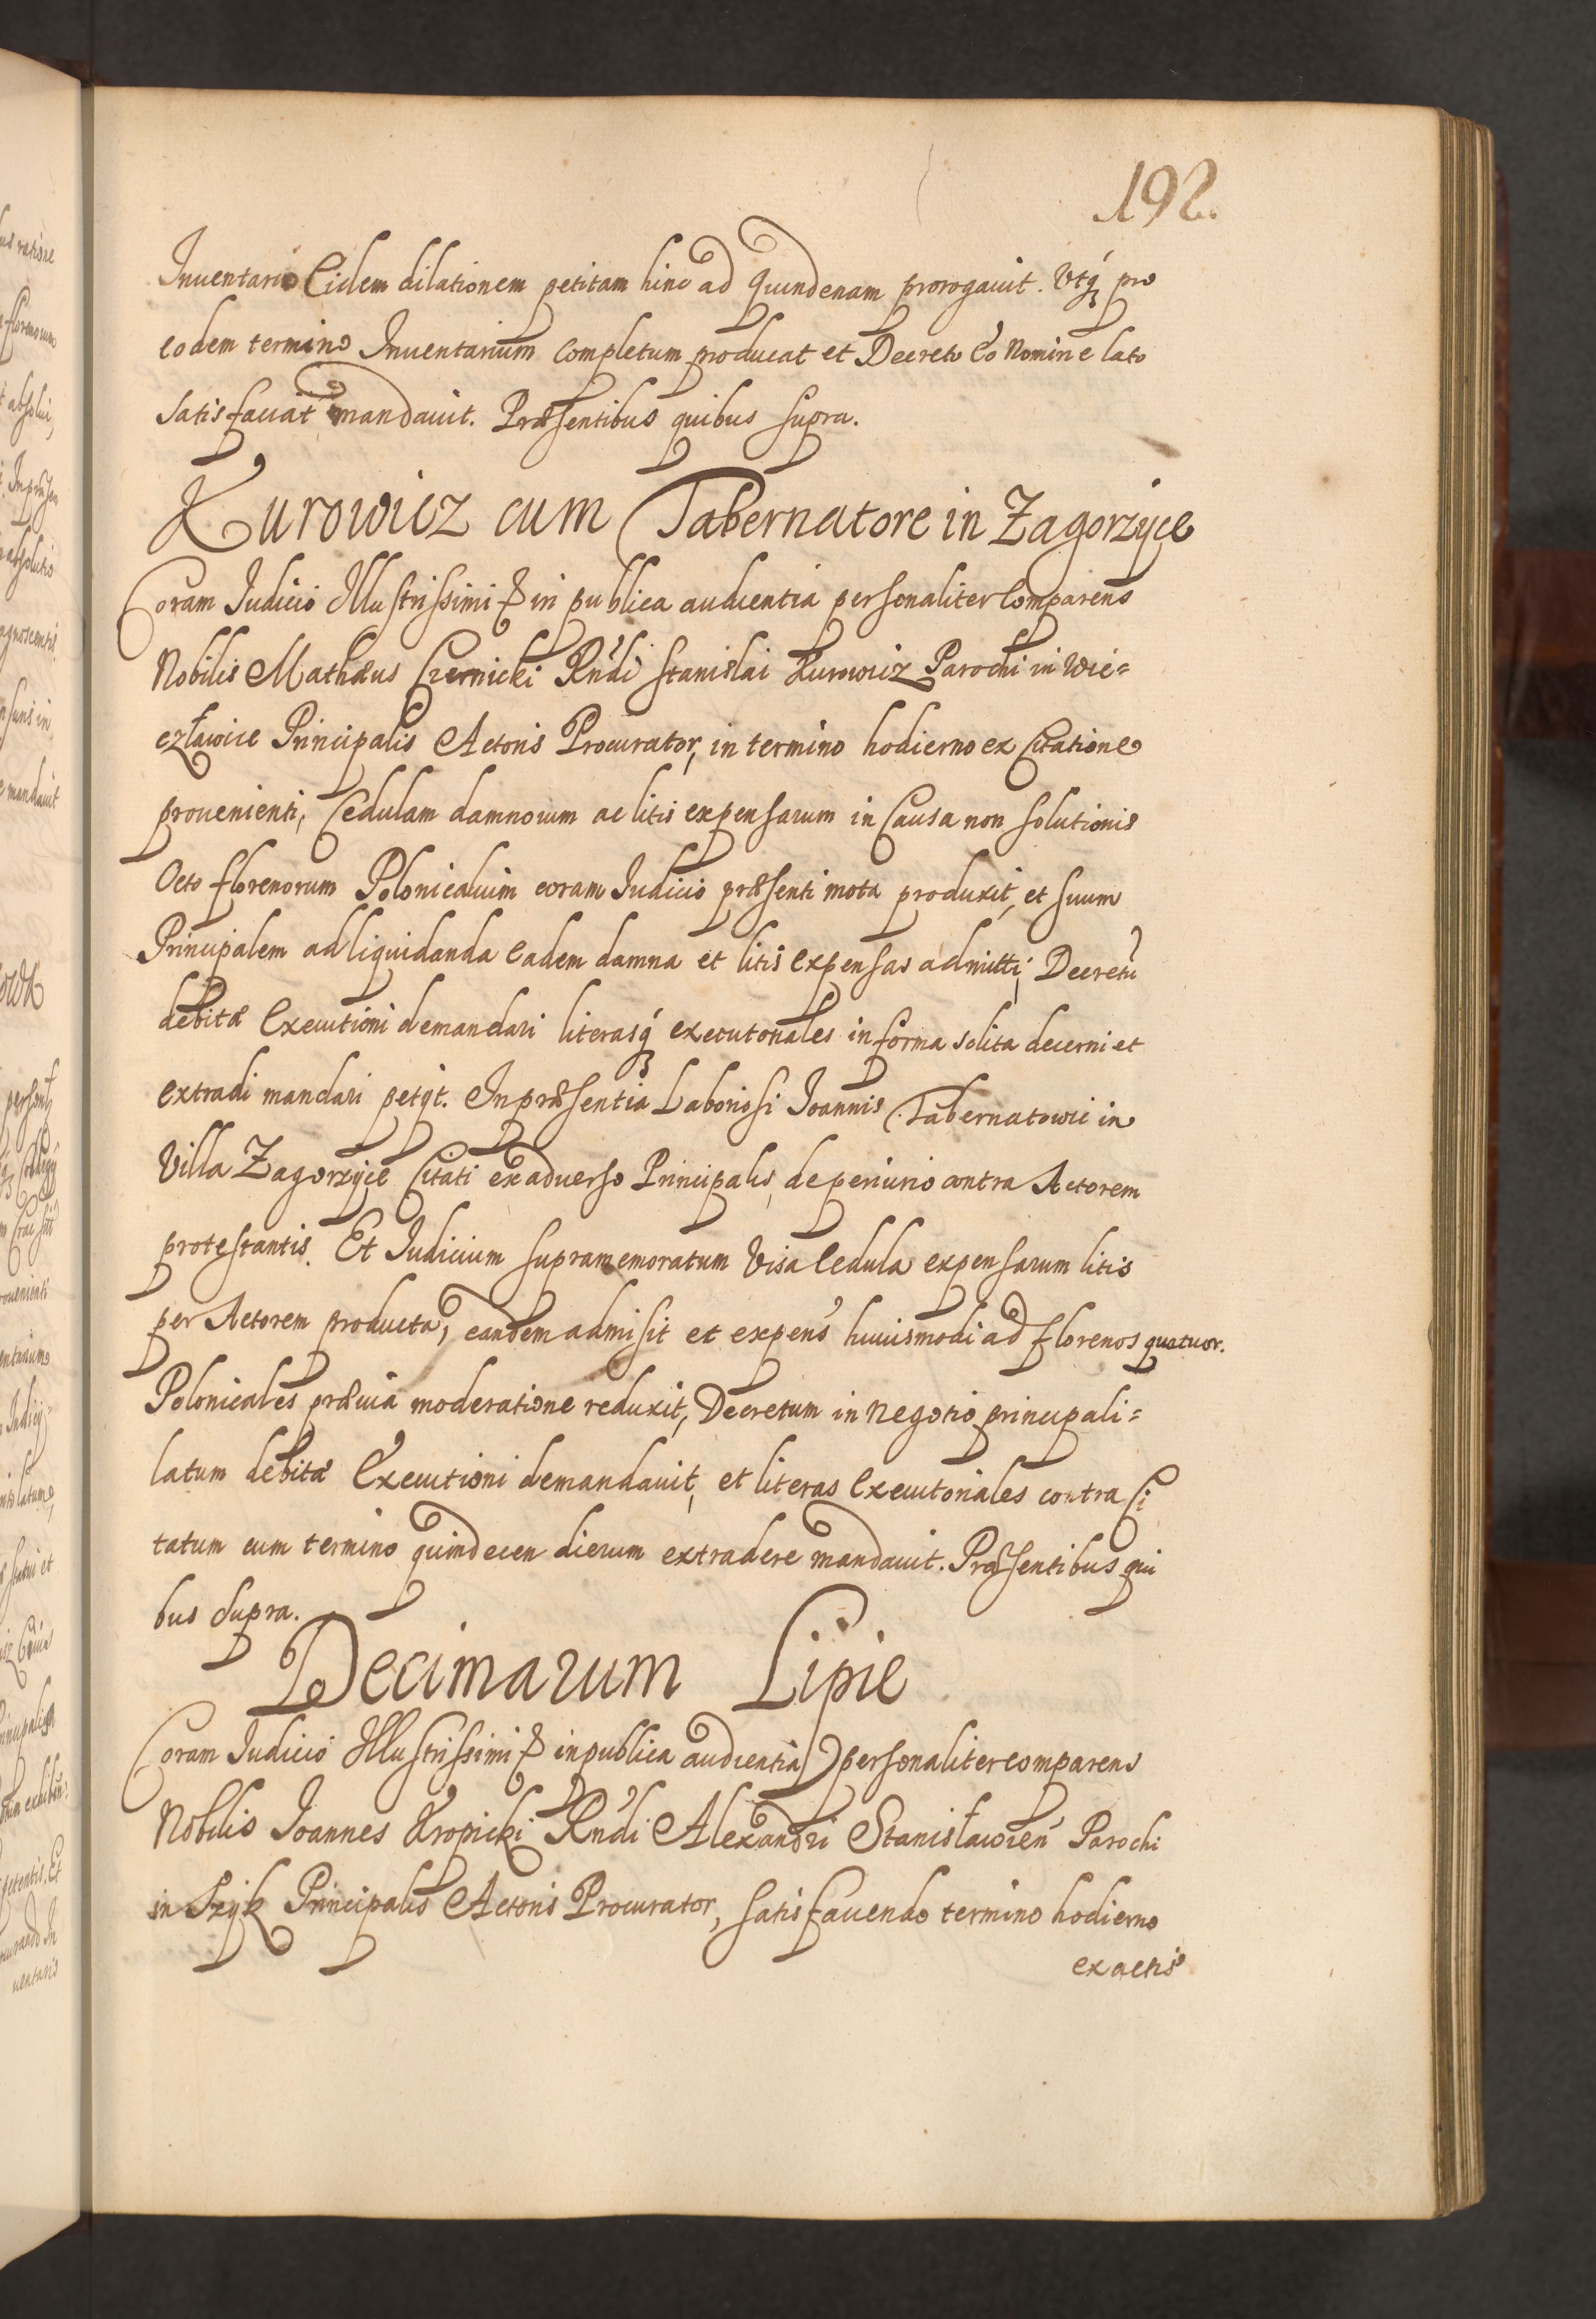 192.
Inuentario Eidem dilationem petitam hinc ad quindenam prorogauit. Vtq́ꝫ pro
eodem termino Inuentarium completum producat et Decreto eo Nomine lato
satisfaciat mandauit. Præsentibus quibus supra.
Kurowicz cum Tabernatore in Zagorzyce
Coram Iudicio Illustrissimi & in publica audientia personaliter Comparens
Nobilis Mathæus Czernicki Rndi Stanislai Kurowicz Parochi in Wie=
czławice Principalis Actoris Procurator, in termino hodierno ex Citatione
prouenienti, Cedulam damnorum ac litis expensarum in Causa non solutionis
Octo florenorum Polonicalium coram Iudicio præsenti mota produxit, et suum
Principalem ad liquidanda eadem damna et litis expensas admitti, Decretũ
debitæ Executioni demandari literasq́ꝫ executoriales in forma solita decerni et
extradi mandari petijt. In præsentia Laboriosi Ioannis Tabernatowic in
Villa Zagorzyce Citati ex aduerso Principalis, de periurio contra Actorem
protestantis. Et Iudicium supramemoratum Visa Cedula expensarum litis
per Actorem producta, eandem admisit et expens huiusmodi ad florenos quatuor.
Polonicales præuia moderatione reduxit, Decretum in negotio principali=
latum debitæ Executioni demandauit, et literas Executoriales contra Ci
tatum cum termino quindecen dierum extradere mandauit. Præsentibus qui
bus supra.
Decimarum Lipie
Coram Iudicio Illustrissimi & in publica audientia personaliter comparens
Nobilis Ioannes Kropicki Rndi Alexandri Stanisławien Parochi
in Szyk Principalis Actoris Procurator, satisfaciendo termino hodierno
ex actis